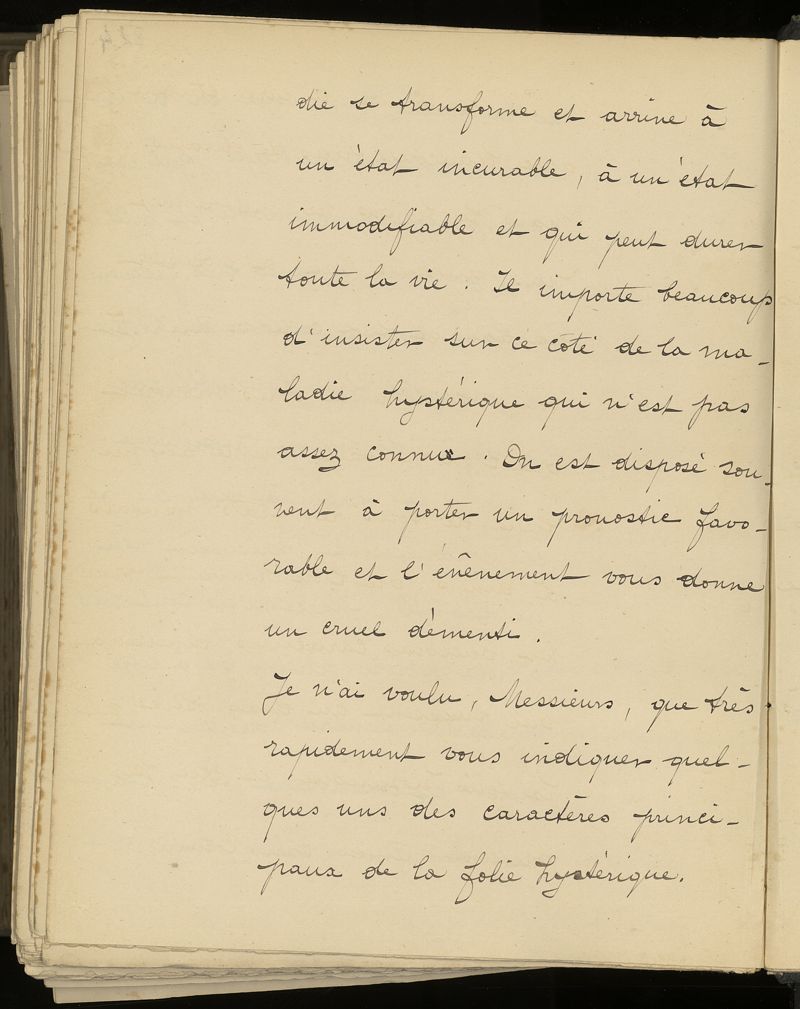 die se transforme et arrive à
un état incurable, à un état
immodifiable et qui peut durer
toute la vie. Il importe beaucoup
d'insister sur ce côté de la ma-
ladie hystérique qui n'est pas
assez connue. On est disposé sou-
vent à porter un pronostic favo-
rable et l'évènement vous donne
un cruel démenti.
Je n'ai voulu, Messieurs, que très
rapidement vous indiquer quel-
ques uns des caractères princi-
paux de la folie hystérique.